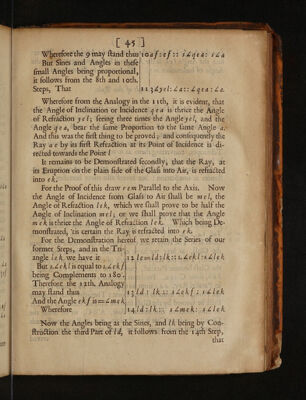 [ 45 ]
Wherefore the 9 may stand thus | 10 a f : e f : : s ∠ q e a : s ∠ a
But Sines and Angles in these
small Angles being proportional,
it follows from the 8th and 10th.
Steps, That | 11 3 ∠ y e l : ∠ a : : ∠ q e a : ∠ a
Wherefore from the Analogy in the 11th, it is evident, that
the Angle of Inclination or Incidence q e a is thrice the Angle
of Refraction y e l; seeing three times the Angle y e l, and the
Angle q e a, bear the same Proportion to the same Angle a.
And this was the first thing to be proved; and consequently the
Ray a e by its first Refraction at its Point of Incidence is di-
rected towards the Point l
It remains to be Demonstrated secondly, that the Ray, at
its Eruption on the plain side of the Glass into Air, is refracted
into e k.
For the Proof of this draw r e m Parallel to the Axis. Now
the Angle of Incidence from Glass to Air shall be m e l, the
Angle of Refraction l e k, which we shall prove to be half the
Angle of Inclination m e l; or we shall prove that the Angle
m e k is thrice the Angle of Refraction l e k. Which being De-
monstrated, 'tis certain the Ray is refracted into e k.
For the Demonstration hereof we retain the Series of our
former Steps, and in the Tri-
angle l e k, we have it | 12 l e m l d : l k : : s ∠ e k l : s ∠ l e k
But s ∠ e k l is equal to s ∠ e k f
being Complements to 180.
Therefore the 12th, Analogy
may stand thus | 13 l d : l k : : s ∠ e k f : s ∠ l e k
And the Angle e k f is = ∠ m e k
Wherefore | 14 l d : l k : : s ∠ m e k : s ∠ l e k
Now the Angles being as the Sines, and l k being by Con-
struction the third Part of l d, it follows from the 14th Step,
that